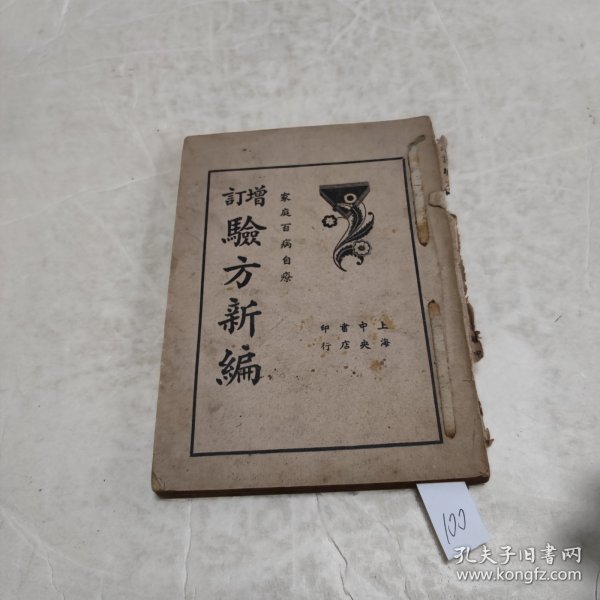 增訂
驗方新編
家庭百病自療
上海
中央
書店
印行
100
孔夫子旧书网
www.kongfz.com